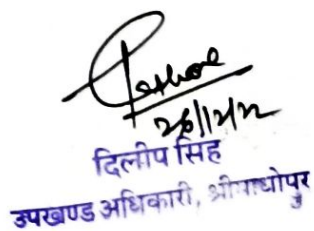 26/12/22
दिलीप सिंह
उपखण्ड अधिकारी, श्रीमाधोपुर